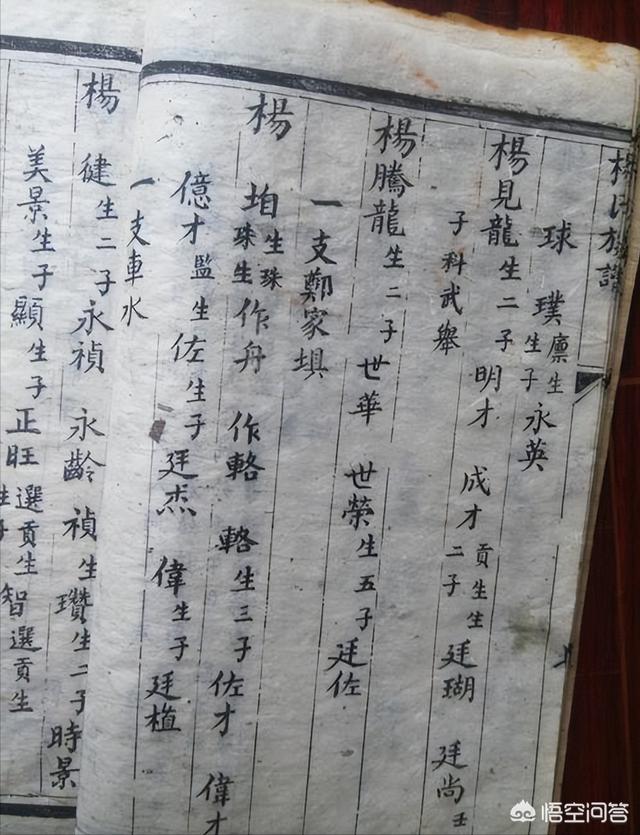 楊氏族譜
球 璞 廩生 生子 永英
楊見龍 生二子 明才 成才 貢生 生二子 廷瑚 廷尚 壬
子科武舉
楊騰龍 生二子 世華 世榮 生五子 廷佐
一支鄭家埧
楊 珀 生珠 珠生 作舟 作輅 輅 生三子 佐才 偉才
億才 監生 佐 生子 廷杰 偉 生子 廷植
一支車水
楊 健 生二子 永禎 永齡 禎 生瓚 生二子 時景
美景 生子 顯 生子 正旺 選貢生 智 選貢生
生子
悟空问答